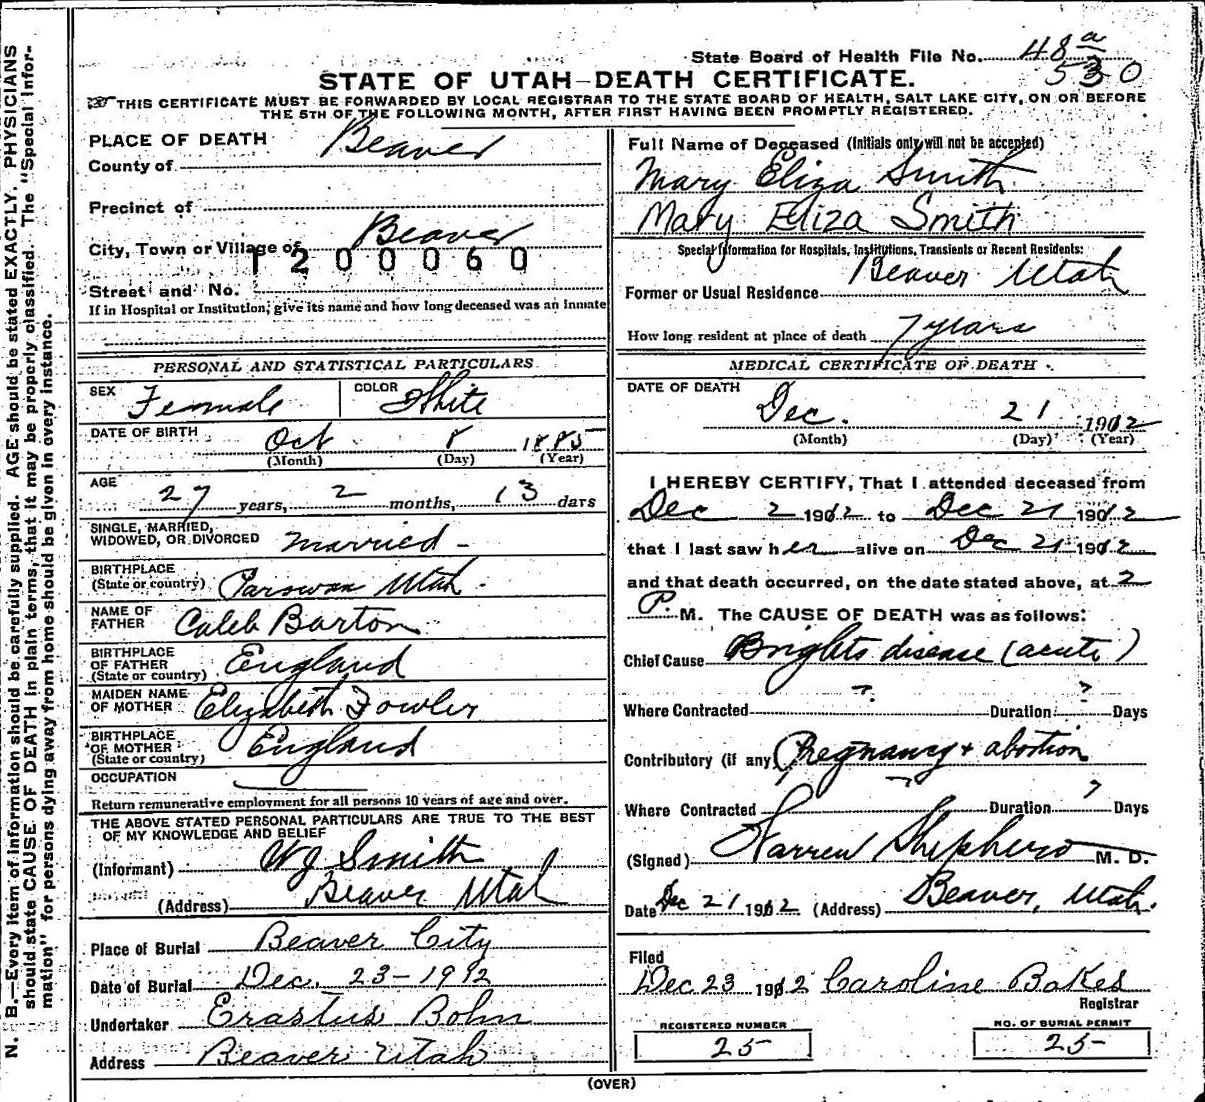 State Board of Health File No. 48 a
530
STATE OF UTAH—DEATH CERTIFICATE.
THIS CERTIFICATE MUST BE FORWARDED BY LOCAL REGISTRAR TO THE STATE BOARD OF HEALTH, SALT LAKE CITY, ON OR BEFORE
THE 5TH OF THE FOLLOWING MONTH, AFTER FIRST HAVING BEEN PROMPTLY REGISTERED.
PLACE OF DEATH
County of Beaver
Precinct of
City, Town or Village of Beaver
1200060
Street and No.
If in Hospital or Institution, give its name and how long deceased was an inmate
PERSONAL AND STATISTICAL PARTICULARS
SEX Female COLOR White
DATE OF BIRTH Oct 8 1885
(Month) (Day) (Year)
AGE 27 years, 2 months, 13 days
SINGLE, MARRIED,
WIDOWED, OR DIVORCED Married
BIRTHPLACE
(State or country) Parowan Utah
NAME OF
FATHER Caleb Barton
BIRTHPLACE
OF FATHER
(State or country) England
MAIDEN NAME
OF MOTHER Elizabeth Fowler
BIRTHPLACE
OF MOTHER
(State or country) England
OCCUPATION
Return remunerative employment for all persons 10 years of age and over.
THE ABOVE STATED PERSONAL PARTICULARS ARE TRUE TO THE BEST
OF MY KNOWLEDGE AND BELIEF
(Informant) WJ Smith
(Address) Beaver Utah
Place of Burial Beaver City
Date of Burial Dec. 23-1912
Undertaker Erastus Bohn
Address Beaver Utah
Full Name of Deceased (Initials only will not be accepted)
Mary Eliza Smith
Mary Eliza Smith
Special Information for Hospitals, Institutions, Transients or Recent Residents:
Former or Usual Residence Beaver Utah
How long resident at place of death 7 years
MEDICAL CERTIFICATE OF DEATH
DATE OF DEATH
Dec. 21 1912
(Month) (Day) (Year)
I HEREBY CERTIFY, That I attended deceased from
Dec 2 1912 to Dec 21 1912
that I last saw her alive on Dec 21 1912
and that death occurred, on the date stated above, at 2
P. M. The CAUSE OF DEATH was as follows:
Chief Cause Brights disease (acute)
Where Contracted ? Duration ? Days
Contributory (if any) Pregnancy + abortion
Where Contracted ? Duration ? Days
(Signed) Warren Shepherd M. D.
Date Dec 21 1912 (Address) Beaver, Utah.
Filed
Dec 23 1912 Caroline Bakes
Registrar
REGISTERED NUMBER
25
NO. OF BURIAL PERMIT
25
(OVER)
N. B.—Every item of information should be carefully supplied. AGE should be stated EXACTLY. PHYSICIANS
should state CAUSE OF DEATH in plain terms, that it may be properly classified. The "Special Infor-
mation" for persons dying away from home should be given in every instance.